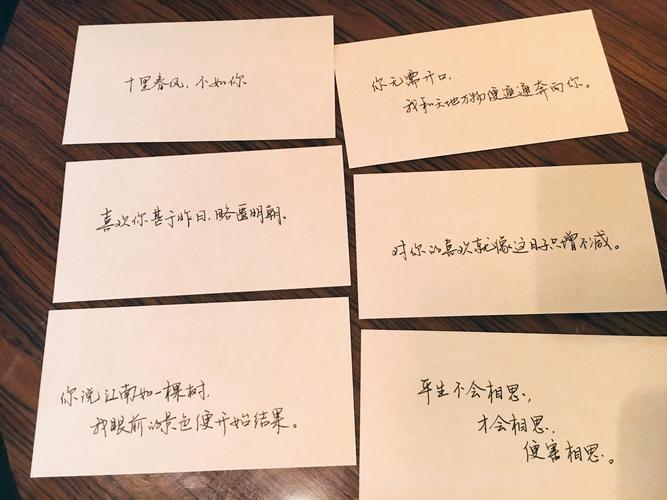 十里春风，不如你
你无需开口，
我和天地万物便通通奔向你。
喜欢你甚于昨日，略匮明朝.
对你的喜欢就像这日子只增不减。
你说江南如一棵树，
我眼前的景色便开始结果。
平生不会相思，
才会相思，
便害相思。